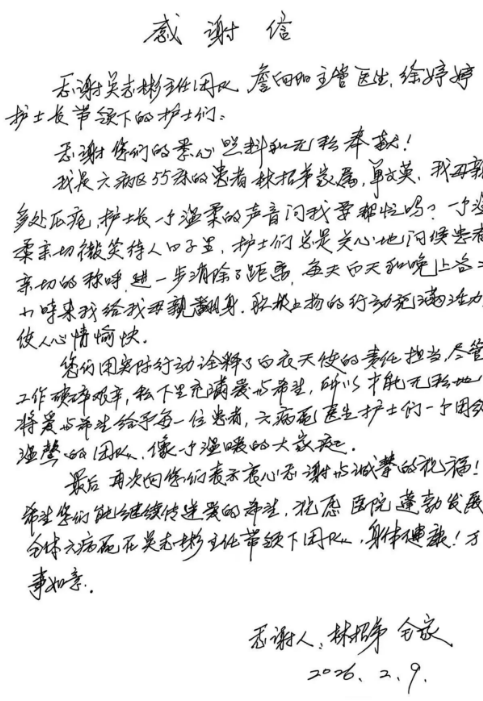 感谢信
感谢吴志彬主任团队 詹阳阳主管医生,徐婷婷
护士长带领下的护士们:
感谢您们的悉心照料和无私奉献!
我是六病区55床的患者林招弟家属,单文英,我母亲
多处压疮,护士长一个温柔的声音问我要帮忙吗?一个温
柔亲切微笑待人
护士们总是关心地问候患者
亲切的称呼进一步消除了距离,每天白天和晚上各2
小时来我给我母亲翻身,积极上扬的行动充满活力
使人心情愉快。
您们用实际行动诠释了白衣天使的责任担当,尽管
工作琐碎艰辛,私下里充满爱与希望,所以才能无私地
将爱与希望给予每一位患者,六病区医生护士们一个团结
温馨的团队,像一个温暖的大家庭。
最后再次向您们表示衷心感谢与诚挚的祝福!
希望您们能继续传递爱的希望,祝愿医院蓬勃发展
全体六病区在吴志彬主任带领下团队,身体健康!万
事如意.
感谢人:林招弟 全家
2026.2.9.